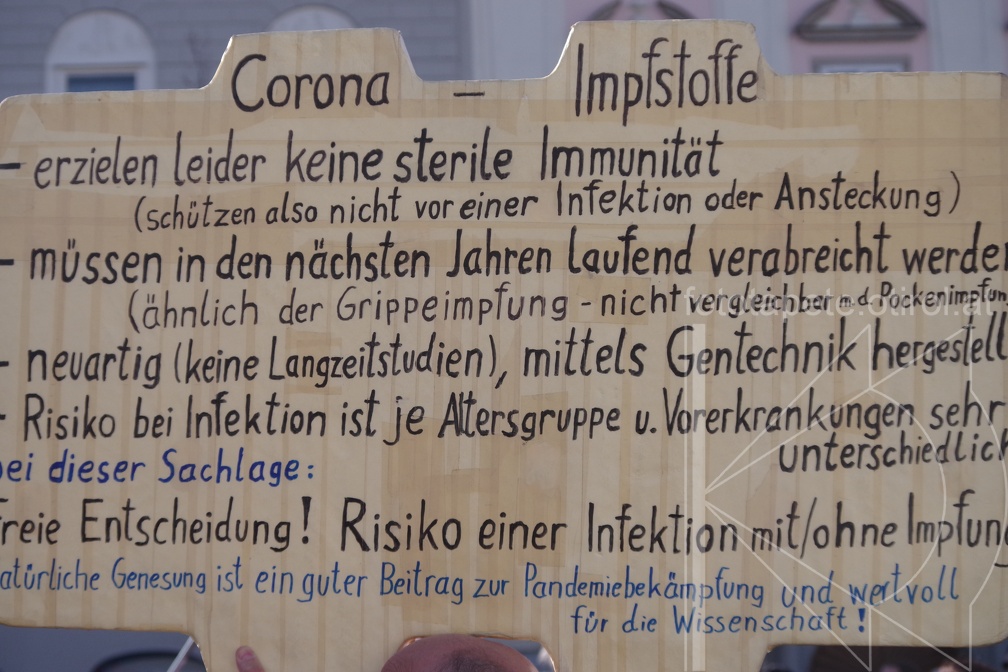 Corona - Impfstoffe
- erzielen leider keine sterile Immunität
(schützen also nicht vor einer Infektion oder Ansteckung)
- müssen in den nächsten Jahren laufend verabreicht werde
(ähnlich der Grippeimpfung - nicht vergleichber m.d. Pockenimpfun
- neuartig (keine Langzeitstudien), mittels Gentechnik hergestell
- Risiko bei Infektion ist je Altersgruppe u. Vorerkrankungen sehr
unterschiedlich
bei dieser Sachlage:
freie Entscheidung! Risiko einer Infektion mit/ohne Impfung
atürliche Genesung ist ein guter Beitrag zur Pandemiebekämpfung und wertvoll
für die Wissenschaft!